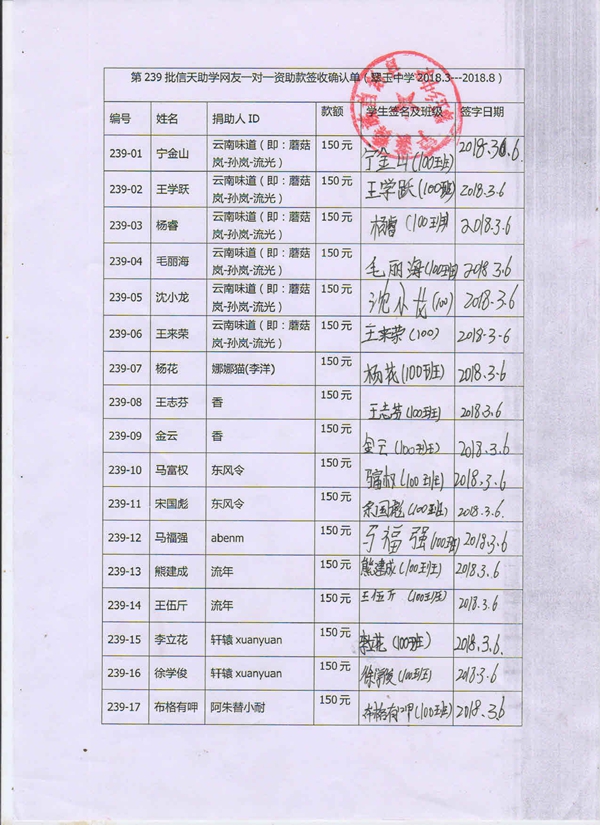 第 239 批信天助学网友一对一资助款签收确认单（翠玉中学 2018.3---2018.8）
编号 姓名 捐助人 ID 款额 学生签名及班级 签字日期
239-01 宁金山 云南味道（即：蘑菇 150 元 宁金山(100班) 2018.3.6
岚-孙岚-流光）
239-02 王学跃 云南味道（即：蘑菇 150 元 王学跃(100班) 2018.3.6
岚-孙岚-流光）
239-03 杨睿 云南味道（即：蘑菇 150 元 杨睿(100班) 2018.3.6
岚-孙岚-流光）
239-04 毛丽海 云南味道（即：蘑菇 150 元 毛丽海(100班) 2018.3.6
岚-孙岚-流光）
239-05 沈小龙 云南味道（即：蘑菇 150 元 沈小龙(100) 2018.3.6
岚-孙岚-流光）
239-06 王来荣 云南味道（即：蘑菇 150 元 王来荣(100) 2018.3.6
岚-孙岚-流光）
239-07 杨花 娜娜猫(李洋) 150 元 杨花(100班) 2018.3.6
239-08 王志芬 香 150 元 王志芬(100班) 2018.3.6
239-09 金云 香 150 元 金云(100班) 2018.3.6
239-10 马富权 东风令 150 元 (100班) 2018.3.6
239-11 宋国彪 东风令 150 元 宋国彪(100班) 2018.3.6.
239-12 马福强 abenm 150 元 福强(100班) 2018.3.6
239-13 熊建成 流年 150 元 熊建成(100班) 2018.3.6
239-14 王伍斤 流年 150 元 王伍斤 (100班) 2018.3.6
239-15 李立花 轩辕 xuanyuan 150 元 李立花(100班) 2018.3.6.
239-16 徐学俊 轩辕 xuanyuan 150 元 徐学俊(100班) 2018.3.6
239-17 布格有呷 阿朱替小耐 150 元 布格有呷(100班) 2018.3.6